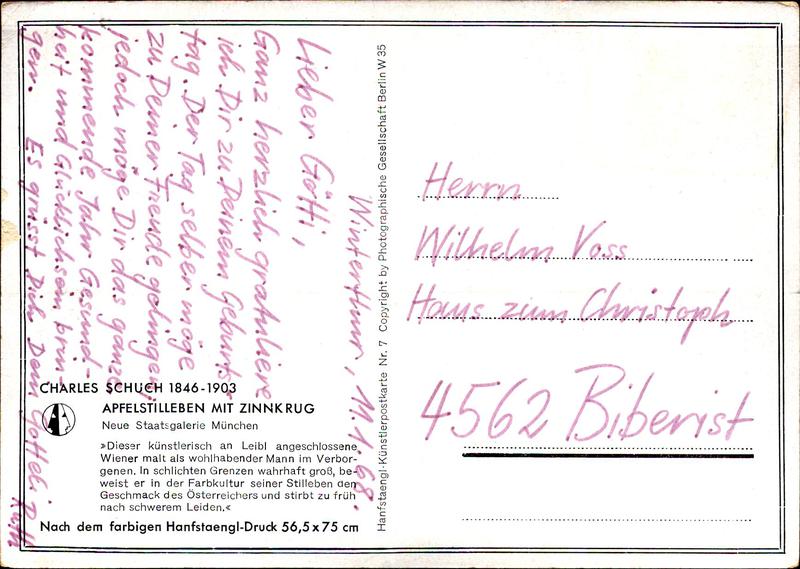 Winterthur, 11.1.68.
Lieber Götti,
Ganz herzlich gratuliere
ich Dir zu Deinem Geburts-
tag. Der Tag selber möge
zu Deiner Freude gelingen,
jedoch möge Dir das ganze
kommende Jahr Gesund-
heit und Glücklichsein brin-
gen. Es grüsst Dich Dein Gotteli Ruth
CHARLES SCHUCH 1846-1903
APFELSTILLEBEN MIT ZINNKRUG
Neue Staatsgalerie München
»Dieser künstlerisch an Leibl angeschlossene
Wiener malt als wohlhabender Mann im Verbor-
genen. In schlichten Grenzen wahrhaft groß, be-
weist er in der Farbkultur seiner Stilleben den
Geschmack des Österreichers und stirbt zu früh
nach schwerem Leiden.«
Nach dem farbigen Hanfstaengl-Druck 56,5 x 75 cm
Hanfstaengl-Künstlerpostkarte Nr. 7 Copyright by Photographische Gesellschaft Berlin W 35
Herrn
Wilhelm Voss
Haus zum Christoph
4562 Biberist